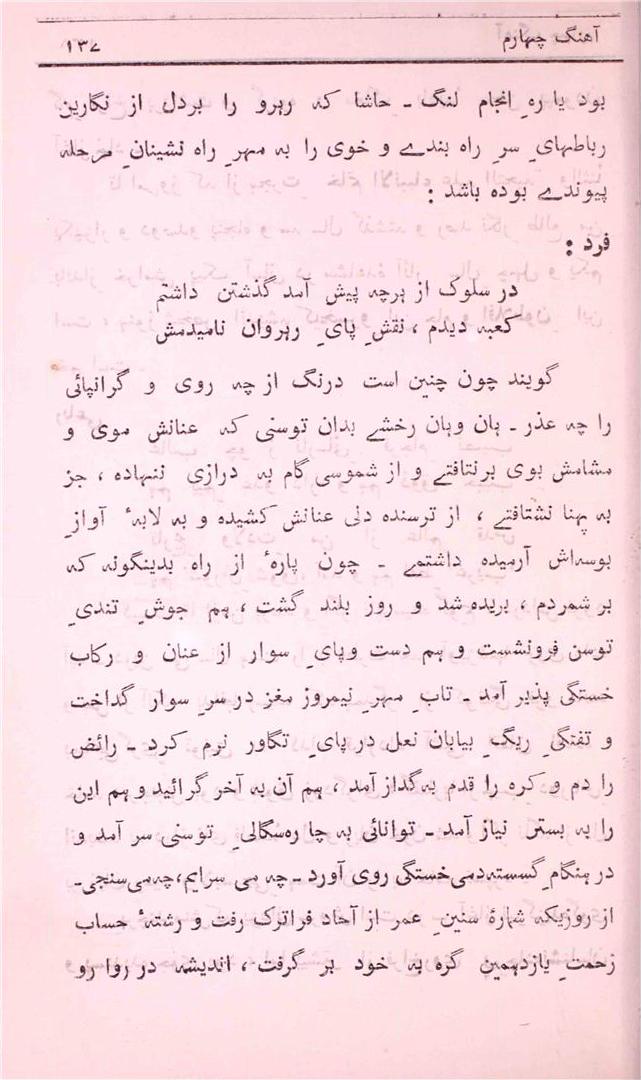 آهنگ چهارم ۱۳۷
بود یا رہِ انجام لنگ ـ حاشا کہ رہرو را بردل از نگارین
رباطہایِ سرِ راہ بندے و خوی را بہ مہرِ راہ نشینانِ مرحلہ
پیوندے بودہ باشد :
فرد :
در سلوک از ہرچہ پیش آمد گذشتن داشتم
کعبہ دیدم ، نقشِ پایِ رہروان نامیدمش
گویند چون چنین است درنگ از چہ روی و گرانپائی
را چہ عذر ـ ہان وہان رخشے بدان توسنی کہ عنانش موی و
مشامش بوی برنتافتے و از شموسی گام بہ درازی ننہادہ ، جز
بہ پہنا نشتافتے ، از ترسندہ دلی عنانش کشیدہ و بہ لابۂ آوازِ
بوسہاش آرمیدہ داشتمے ـ چون پارۂ از راہ بدینگونہ کہ
بر شمردم ، بریدہ شد و روز بلند گشت ، ہم جوشِ تندیِ
توسن فرونشست و ہم دست وپایِ سوار از عنان و رکاب
خستگی پذیر آمد ـ تابِ مہرِ نیمروز مغز در سرِ سوار گداخت
و تفتگیِ ریگِ بیابان نعل در پایِ تگاور نرم کرد ـ رائض
را دم و کرہ را قدم بہ گداز آمد ، ہم آن بہ آخر گرائید و ہم این
را بہ بستر نیاز آمد ـ توانائی بہ چارہ سگالیِ توسنی سر آمد و
در ہنگامِ گسستہ دمی خستگی روی آورد ـ چہ می سرایم، چہ می سنجی ـ
از روزیکہ شمارۂ سنینِ عمر از آحاد فراترک رفت و رشتۂ حساب
زحمتِ یازدہمین گرہ بہ خود بر گرفت ، اندیشہ در روا رو